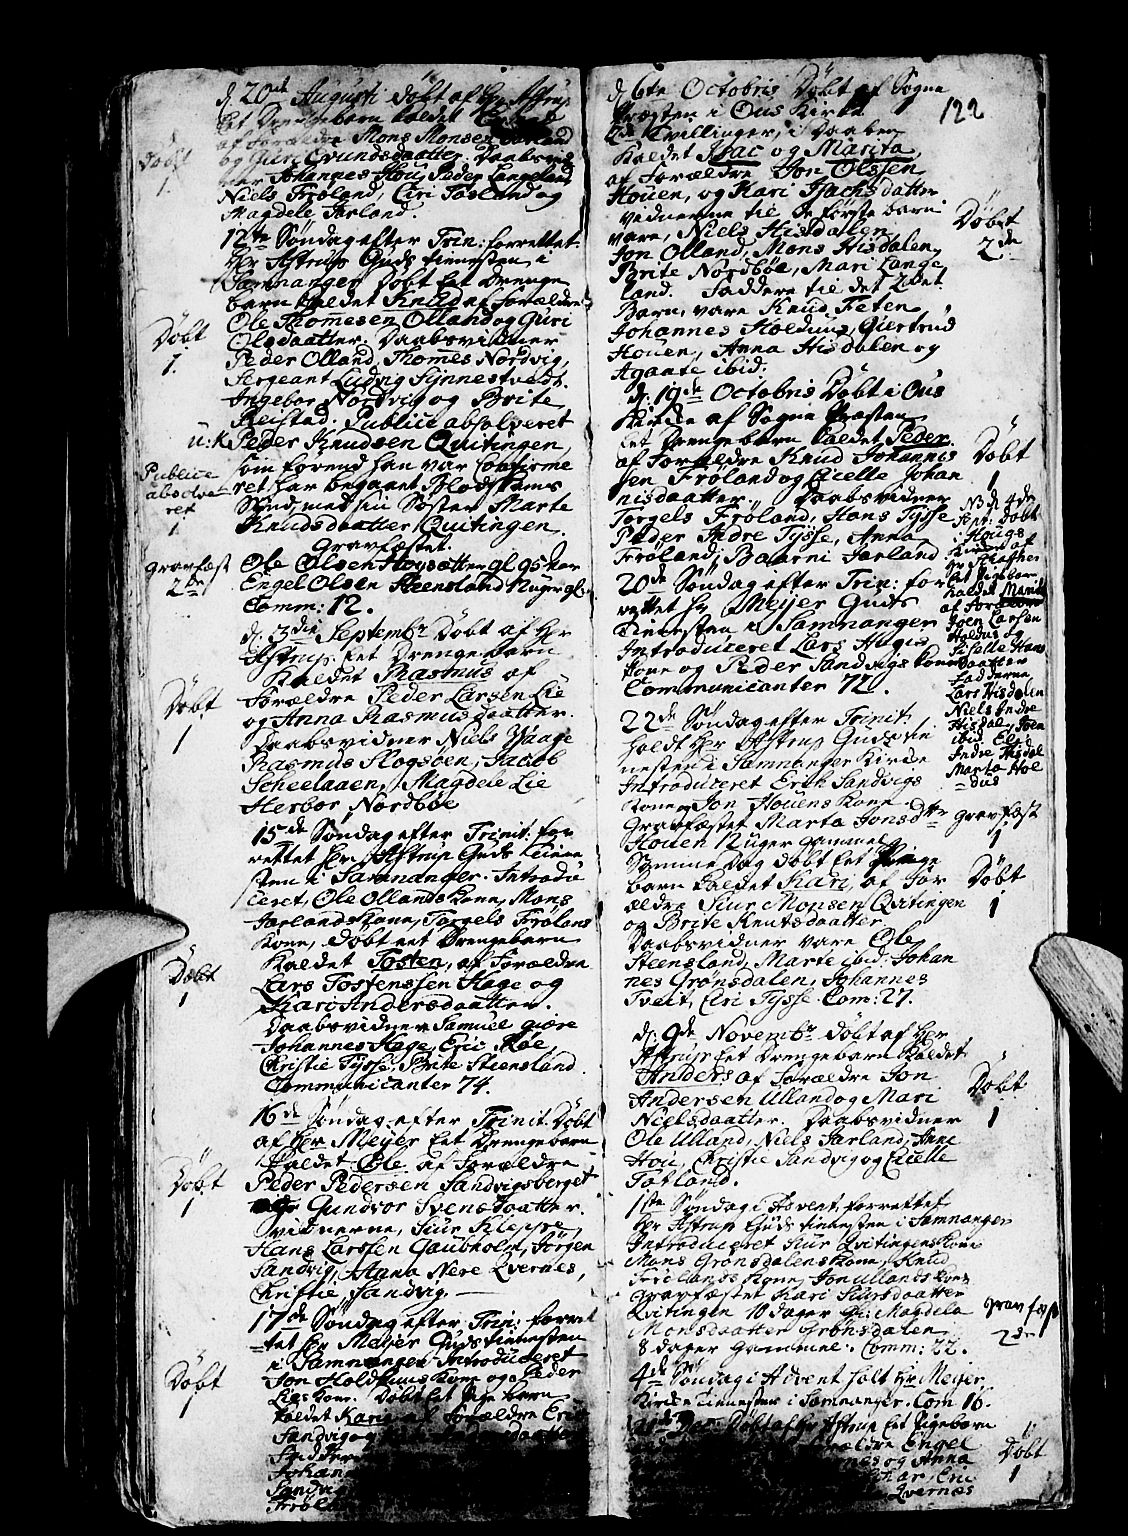 d. 20de Augusti Døbt af Hr Astrup
Eet Drengebarn kaldet
af Forældre Mons Monsen Jarland
og Guri Evundsdaatter. Daabsvid
ner Johannes Hou, Peder Langeland
Niels Frøland, Ciri Tosland og
Magdele Jarland.
Døbt
1.
12te Søndag efter Trin: forrettet
Hr Astrup Guds tienesten i
Samnanger Døbt Eet Drenge
barn kaldet Knud af Forældre
Ole Thomesen Olland og Guri
Olsdaatter. Daabsvidner
Peder Olland, Thomes Nordvig,
Sergeant Ludvig Synnestvedt.
Ingebor Nordvig og Brite
Reistad. Publice absolveret
Døbt
1.
Peder Knudsen Quitingen,
som forend han var Confirme
ret har begaaet Blodskams
Synd, med sin Søster Marte
Knudsdaatter Quitingen.
u:k
Publice
absolve
ret
1
Gravfæstet.
Ole Olsen Høysæter gl 95 Aar
Engel Olsen Steensland 12 uger gl
Comm: 12.
gravfæst
2de
d. 3die Septembr Døbt af Hr
Astrup Eet Drengebarn
Kaldet Rasmus af
Forældre Peder Larsen Lie
og Anna Rasmusdaatter.
Daabsvidner Niels Waage
Rasmus Slogsøen, Jacob
Scheelaaen, Magdele Lie
Herbor Nordbøe
Døbt
1
15de Søndag efter Trinit: for
rettet Hr Astrup Guds tiene
sten i Samnanger. Introdu
ceret, Ole Ollands Kone, Mons
Jarlands Kone, Torgels Frølans
Kone, Døbt eet Drengebarn
Kaldet Tosten, af Forældre
Lars Tostensen Hage og
Kari Andersdaatter.
Daabsvidner Samuel giøre
Johannes Hage, Eric Røe,
Christie Tysse, Brite Steensland
Communicanter 74.
Døbt
1
16de Søndag efter Trinit. Døbt
af Hr Meyer Eet Drengebarn
Kaldet Ole, af Forældre
Peder Pedersen Sandvigsberget
og Gundvor Svensdaatter.
vidnerne, Siur Kleppe,
Hans Larssen Gaupholm, Jørgen
Sandvig, Anna Nere Qvernes,
Christie, Sandvig. —
Døbt
1
17de Søndag efter Trin: forret
tet Hr Meyer Gudstienesten
i Samnanger Introduceret
Jon Holdhuus Kone og Peder
Lies Kone. Døbt Eet Pigebarn
kaldet Kari af Forældre Eric
Sandvig og
Johan
Sandvig
Frølan
Døbt
1
122
d. 6te Octobris Døbt af Sogne
Præsten i Ous Kirke
2de Tvillinger, i Daaben
Kaldet Isac og Marita,
af Forældre Jon Olssen
Houen, og Kari Isachsdatter
vidnerne til de første barn
vare, Niels Hisdalen,
Jon Olland, Mons Hisdalen,
Brite Nordbøe, Mari Lange
land. Faddere til det 2det
Barn, vare Knud Feten
Johannes Holdhus, Giertrud
Houen, Anna Hisdalen og
Agaate ibid:
Døbt
2de
d. 19de Octobris Døbt i Ous
Kirke af Sogne Præsten
Eet Drengebarn kaldet Peder
af Forældre Knud Johannis
sen Frøland og Cicelle Johan
nisdaatter. Daabsvidner
Torgels Frøland, Hans Tysse
Peder Andre Tysse, Anna
Frøland, Baarni Jarland
Døbt
1
NB d. 4de
Sept: Døbt
i Hougs
Kirke af
Hr Schafner
Eet Pigebar
kaldet Marit
af Forældre
Joen Larsen
Holdus og
Siselle Hans
daatter
Fadderne
Lars Hisdalen
Niels Andre
Hisdal, Joen
ibid El
Indre Hisdal
Marta Hol
dus
20de Søndag efter Trin: for
rettet Hr Meijer Guds
tienesten i Samnanger
Introduceret Lars Hages
Kone og Peder Sandvigs Kone
Communicanter 72.
22de Søndag efter Trinit:
holdt Hr Astrup Guds tie
nesten i Samnanger Kirke
Introduceret Erik Sandvigs
Kone og Jon Houens Kone.
Gravfæstet Marta Jonsdtr
Houen 12 uger gammel
Samme Dag døbt Eet Pige
barn kaldet Kari, af For
ældre Siur Monsen Qvitingen
og Brite Knutsdaatter
Daabsvidner vare Ole
Steensland, Marte ibid: Johan
nes Grønsdalen, Johannes
Tveit, Ciri Tysse. Com: 27.
gravfæst
1
Døbt
1
d. 9de Novembr døbt af Hr
Astrup Eet Drengebarn kaldet
Anders af Forældre Jon
Andersen Ulland og Mari
Nielsdaatter. Daabsvidner
Ole Ulland, Niels Jarland, Anne
Hou, Christie Sandvig og Cicelle
Totland.
Døbt
1
1ste Søndag i Advent, forrettet
Hr Astrup Guds tienesten i Samnanger
Introduceret Siur Qvitingens Kone
Mons Grønsdalens Kone, Knud
Frølands Kone, Jon Ullands Kone
Gravfæstet Kari Siursdaatter
Qvitingen 10 dager gl: Magdela
Monsdaatter Grønsdalen
8 dager gammel. Comm: 22.
gravfæst
2de
4de Søndag i Advent holt Hr Meijer
Kirke tienesten i Samnanger. Com 16.
Døbt af Hr Astrup Eet Pigebarn
Forældre Engel
og Anna
Eric
Qvernes
Døbt
1